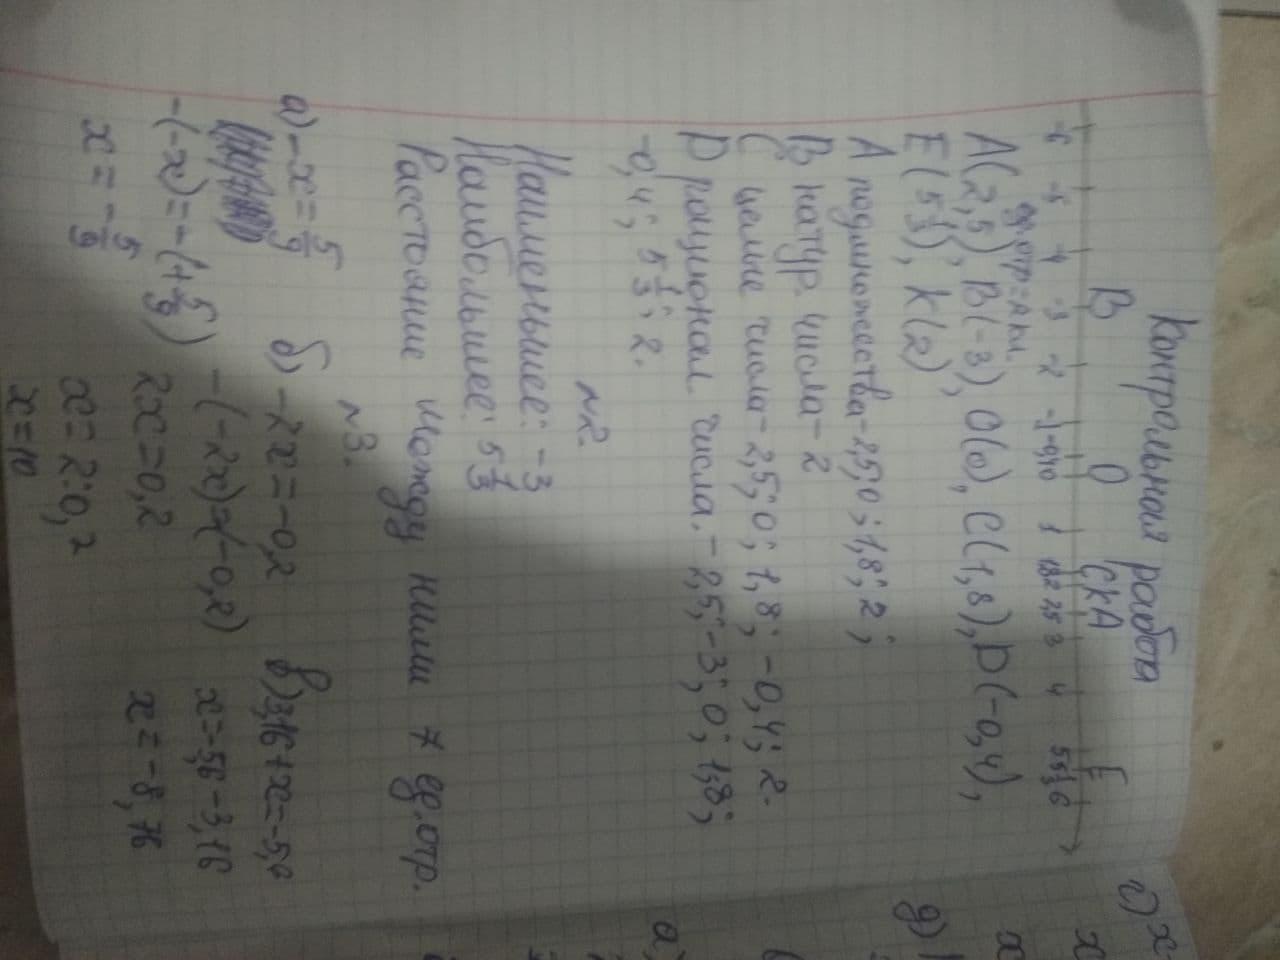 Контрольная работа
В О С К А Е
-6 -5 -4 -3 -2 -1 -0,4 0 1 1,8 2 2,5 3 4 5 5 1/3 6
ед.отр = 2 кл.
А(2,5), В(-3), О(0), С(1,8), D(-0,4),
Е(5 1/3), К(2)
А подмножества - 2,5; 0; 1,8; 2;
В натур. числа - 2
С целые числа - 2,5; 0; 1,8; -0,4; 2.
D рационал. числа. - 2,5; -3; 0; 1,8;
-0,4; 5 1/3; 2.
№2.
Наименьшее: -3
Наибольшее: 5 1/3
Расстояние между ними 7 ед.отр.
№3.
а) -x = 5/9
-(-x) = -(+5/9)
x = -5/9
б) -2x = -0,2
-(-2x) = (-0,2)
2x = 0,2
x = 2:0,2
x = 10
в) 3,16 + x = -5,6
x = -5,6 - 3,16
x = -8,76
г) x
x
д)
x
а